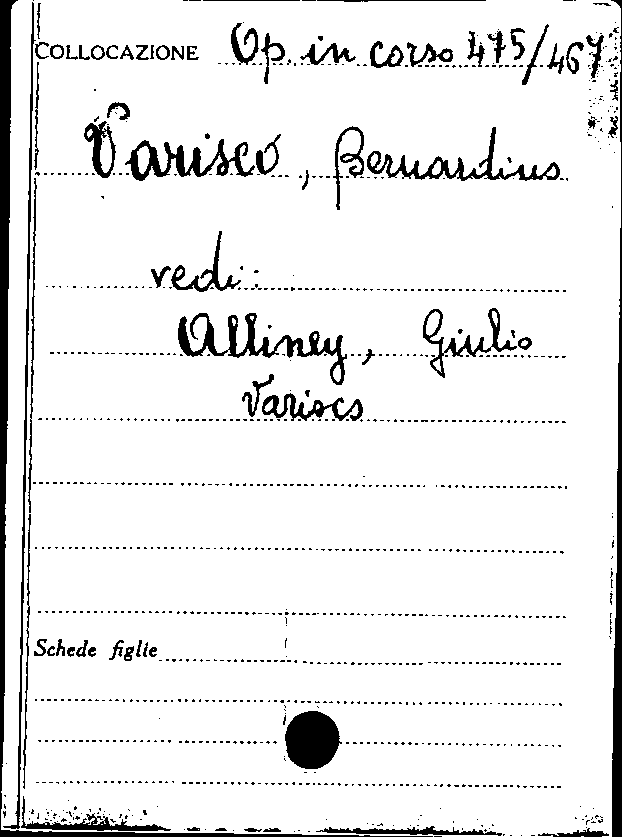 COLLOCAZIONE Op. in corso 475/467
Varisco, Bernardino
vedi:
Alliney, Giulio
Varisco
Schede figlie